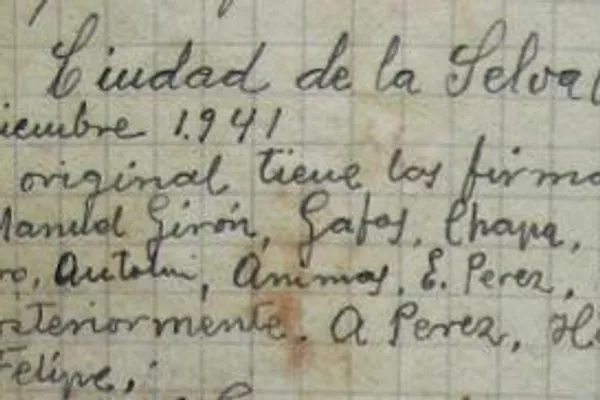 Ciudad de la Selva
iciembre 1.941
original tiene las firma
Manuel Girón, Gafas, Chapa,
ro, Antolin, Animas, E. Perez,
steriormente. A Perez, H
Felipe,